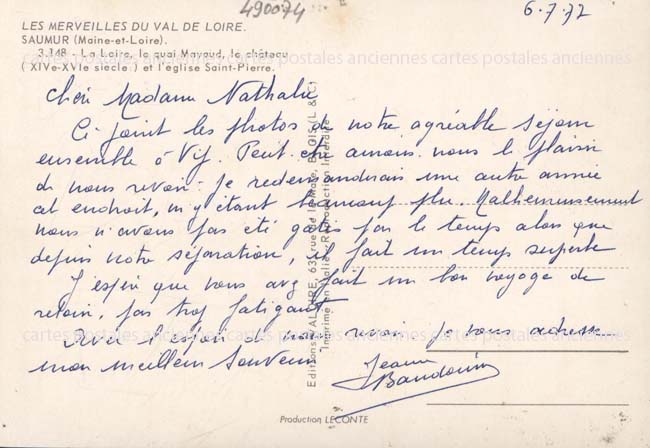 490074
6.7.72
LES MERVEILLES DU VAL DE LOIRE.
SAUMUR (Maine-et-Loire).
3.148 - La Loire, le quai Mayaud, le château
(XIVe-XVIe siècle) et l'église Saint-Pierre.
cartes postales anciennes cartes postales anciennes cartes postales anciennes
Madame Nathalie
Ci joint les photos de notre agréable séjour
ensemble à Vif. Peut être aurons nous le plaisir
de nous revoir. Je redemanderais une autre année
cet endroit, m'y étant beaucoup plu. Malheureusement
nous n'avons pas été gatés par le temps alors que
depuis notre séparation, il fait un temps superbe
J'espère que vous avez fait un bon voyage de
retour, pas trop fatigant
cartes postales anciennes cartes postales anciennes cartes postales anciennes
Avec l'espoir de nous revoir, je vous adresse
mon meilleur souvenir
Jeanne
Baudouin
Editions VALOIRE, 63, rue de la Mare, BLOIS (L & C)
Imprimé en Italie - Reproduction Interdite
Production LECONTE